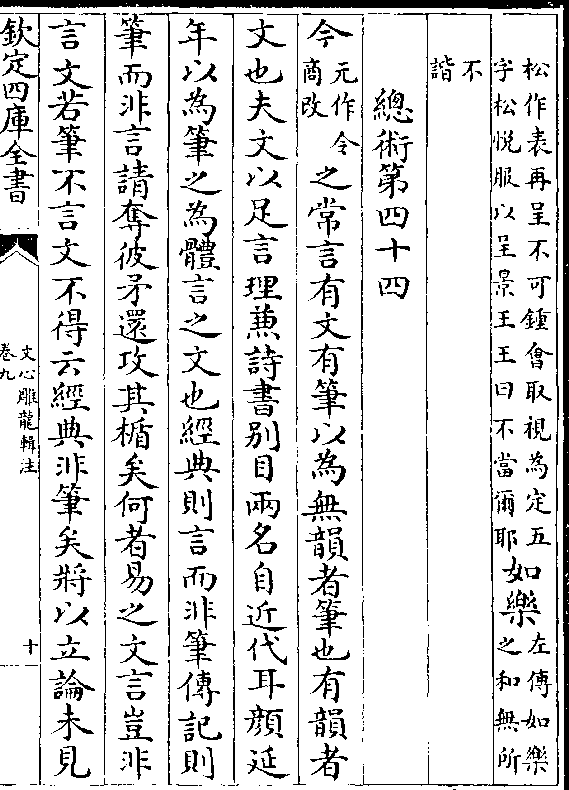 松作表再呈不可鍾會取視為定五
字松悦服以呈景王王曰不當爾耶
如樂
左傳如樂
之和無所
不
諧
總術第四十四
今
元作令
商改
之常言有文有筆以為無韻者筆也有韻者
文也夫文以足言理蕪詩書别目兩名自近代耳顔延
年以為筆之為體言之文也經典則言而非筆傳記則
筆而非言請奪彼矛還攻其楯矣何者易之文言豈非
言文若筆不言文不得云經典非筆矣將以立論未見
欽定四庫全書
文心雕龍輯注
卷九
十